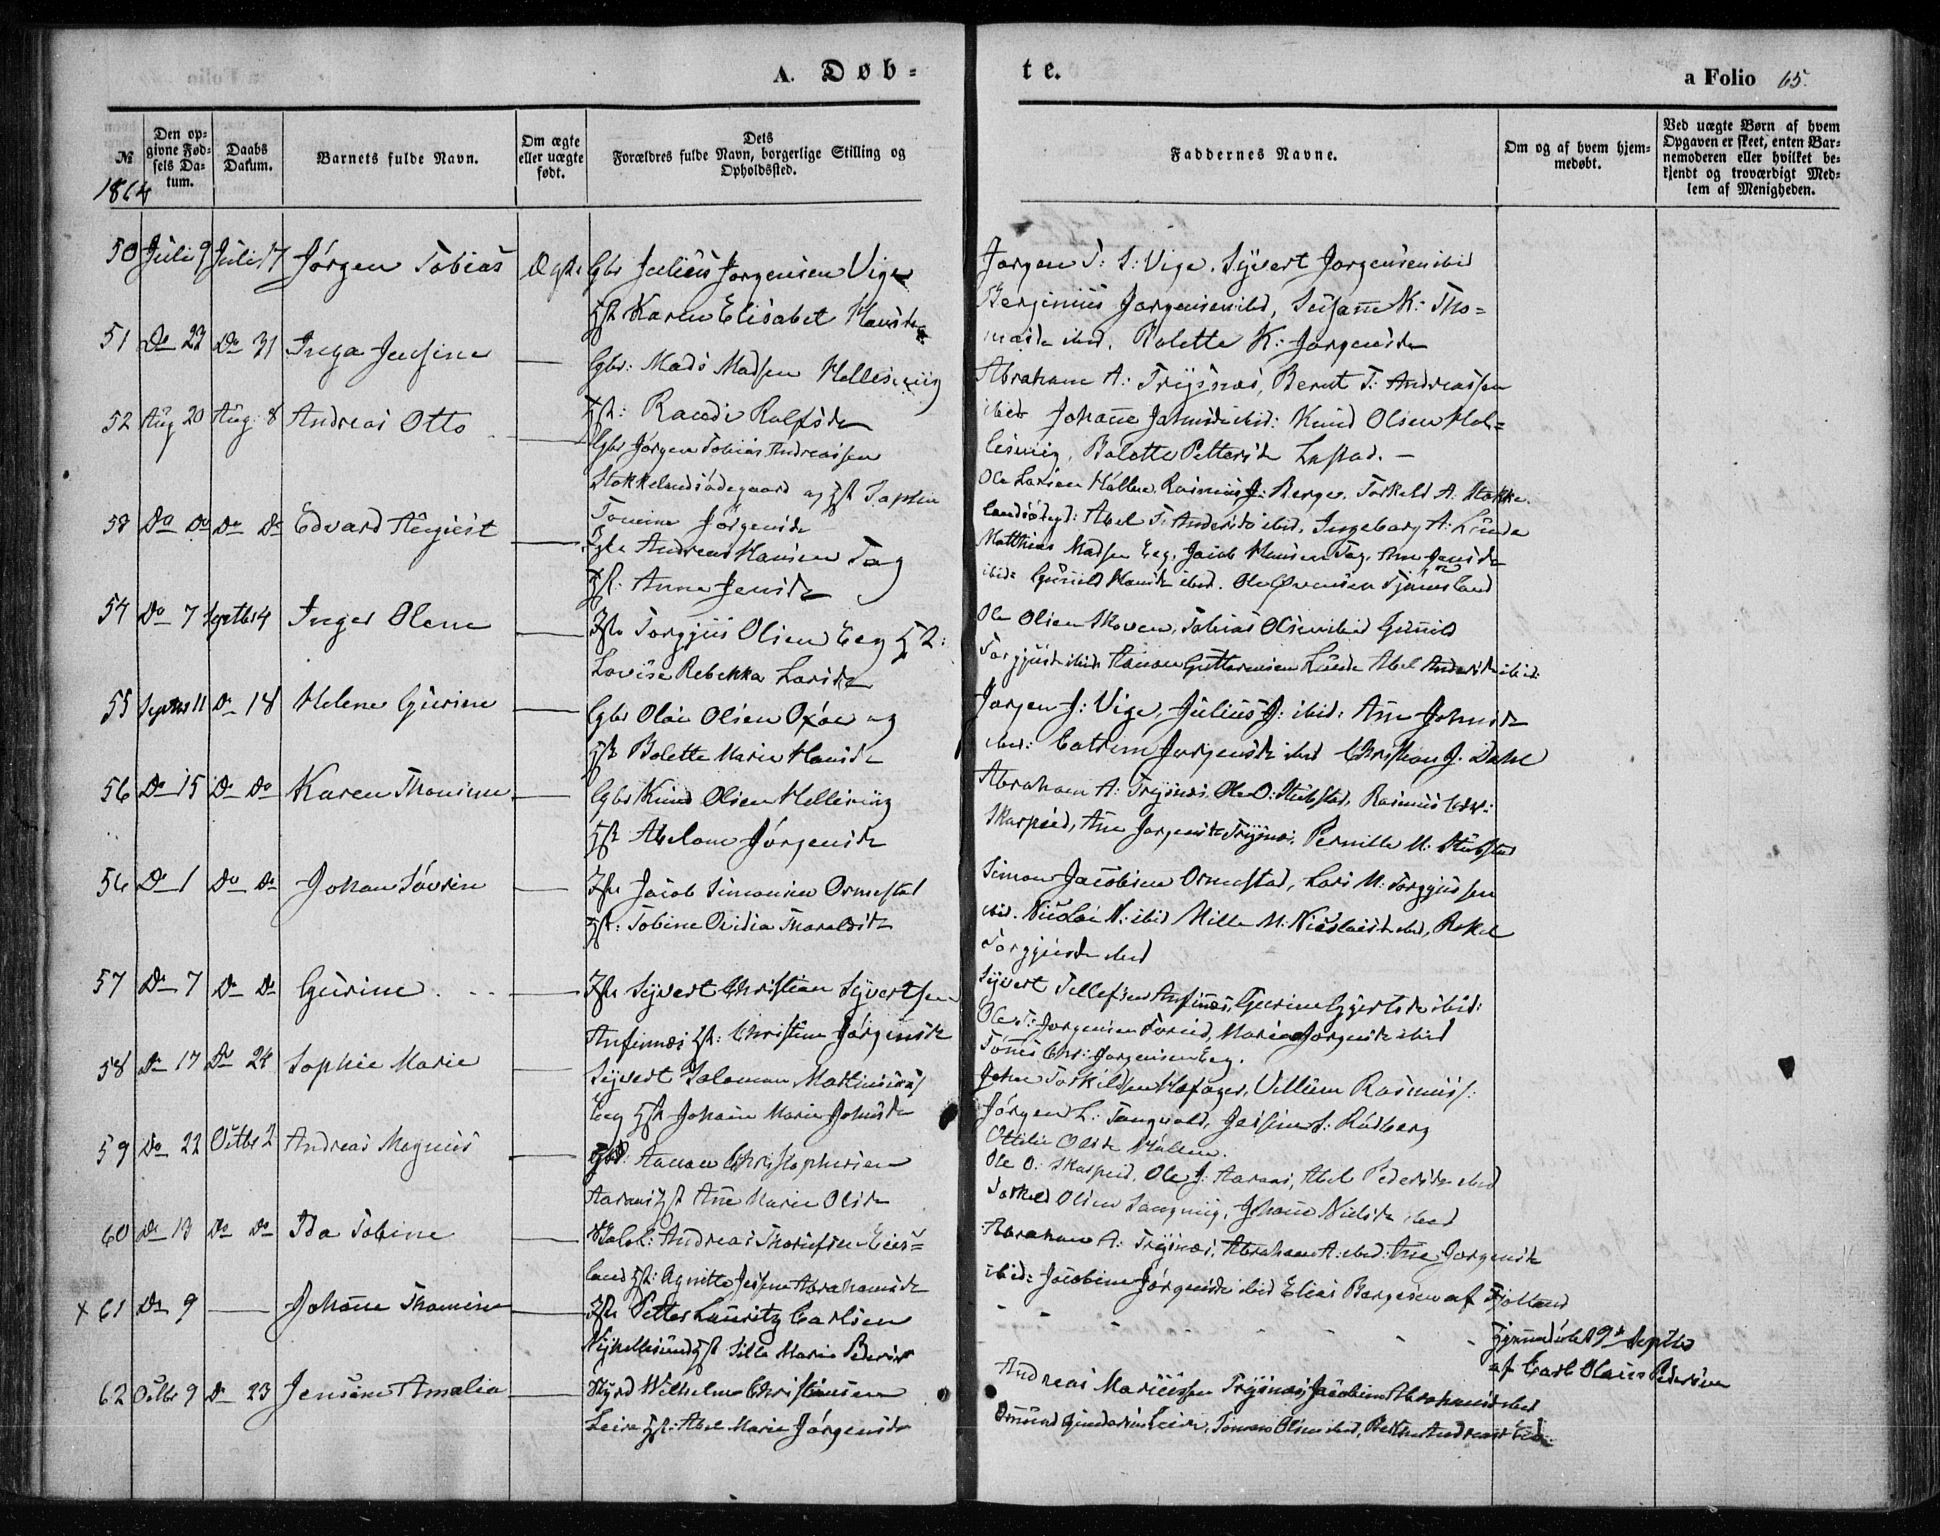 A. Døb= te. a Folio 65.
№ 1864
Den op=givne Fød=sels Da=tum.
Daabs Datum.
Barnets fulde Navn.
Om ægte eller uægte født.
Dets Forældres fulde Navn, borgerlige Stilling og Opholdssted.
Faddernes Navne.
Om og af hvem hjem=medøbt.
Ved uægte Børn af hvem Opgaven er skeet, enten Bar=nemoderen eller hvilket be=kjendt og troværdigt Med=lem af Menigheden.
50 Juli 9 Juli 17 Jørgen Tobias Ægte Gbr Julius Jørgensen Vige
Hst Karen Elisabet Hansdr
Jørgen T: S: Vige. Syvert Jørgensen ibid
Berginius Jørgensen ibid, Susane K: Tho=
masdr ibid. Bolette K: Jørgensdr
51 Do 23 Do 31 Inga Jensine — Gbr: Mads Madsen Hellesviig
Hst: Randi Rolfsdr
Abraham A: Trysnæs, Bernt T: Andreassen
ibid Johanne Jahnsdr ibid: Knud Olsen Hel=
lesviig, Bolette Pettersdr Lastad. —
52 Aug 20 Aug: 8 Andreas Otto — Gbr Jørgen Tobias Andreassen
Stokkelandsødegaard og Hst Sophie
Tomine Jørgensdr
Ole Larsen Hallen, Rasmus J: Berge. Torkeld A. Stokke
landsødeg: Abel T: Andersdr ibid. Ingeborg A: Lunde
53 Do Do Do Do Edvard August — Inds Andreas Hansen Tag
Hst: Anne Jensdr
Matthias Madsen Eeg, Jacob Hansen Tag. Ane Jensdr
ibid: Gunild Hansdr ibid. Ole Ovensen Tjømsland
54 Do 7 Septbr 4 Inger Olene — Inds Torgjus Olsen Eeg Hst:
Lovise Rebekka Larsdr
Ole Olsen Skoven, Tobias Olsen ibid Gunild
Torgjusdr ibid Aanon Guttormsen Lunde Abel Andersdr ibid:
55 Septbr 11 Do 18 Helene Gurine — Gbr Olai Olsen Oxøe og
Hst Bolette Marie Hansdr
Jørgen J: Vige, Julius J: ibid: Ane Johnsdr
ibid: Catrine Jørgensdr ibid Christian J. Dahl
56 Do 15 Do Do Karen Thomine — Gbr Knud Olsen Helleviig
Hst Abelone Jørgensdr
Abraham A: Trysnæs, Ole O: Stubstad, Rasmus
Skarpeid, Ane Jørgensdr Trysnæs, Pernille M: Stubstad
56 Do 1 Do Do Johan Søvrin — Inds Jacob Simonsen Ormestad
Hst: Tobine Ovidia Tharaldsdr
Simon Jacobsen Ormestad, Lars M: Torgjussen
ibid. Nicolai N: ibid Mille M: Nicolaisdr ibid, Rakel
Torgjusdr ibid
57 Do 7 Do Do Gurine — Inds Syvert Christian Syvertsen
Anfinnæs Hst: Christine Jørgensdr
Syvert Tellefsen Anfinnæs, Gurine Eggertsdr ibid:
Ole T: Jørgensen Toreid, Maria Jørgensdr ibid
Tønes Chr: Jørgensen Eeg.
58 Do 17 Do 24 Sophie Marie — Syvert Salomon Mathiassen
Eeg Hst Johanne Marie Johnsdr
John Torkildsen Høiager, Villum Rasmuss:
Jørgen L: Tangvald, Jensine S: Rudberg
Ottilie Olsdr Hallen.
59 Do 22 Octbr 2 Andreas Magnus — Gbr: Aanon Christophersen
Aaraas Hst Ane Marie Olsdr
Ole O: Skarpeid, Ole J: Aaraas, Abel Pedersdr ibid
Torkeld Olsen Langviig, Johanne Nielsdr ibid
60 Do 13 Do Do Ida Tobine — Andreas Thorsen Eies=
land Hst: Agnitte Jensine Abrahamsdr
Abraham A: Trysnæs, Abraham A: ibid: Ane Jørgensdr
ibid: Jacobine Jørgensdr ibid Elias Børgesen af Fjotland
x 61 Do 9 — Johanne Thomine — Inds Petter Lauritz Carlsen
Nyhellesund Hst Sille Marie Pedersdr
Hjemmedøbt 9de Septbr
af Carl Olaus Pedersen
62 Octbr 9 Do 23 Jensine Amalia — Wilhelm Christiansen
Leire Hst: Abel Marie Jørgensdr
Andreas Mariussen Trysnæs, Jacobine Abrahamsdr ibid
Gundersen Leire, Tomas Olsen ibid,